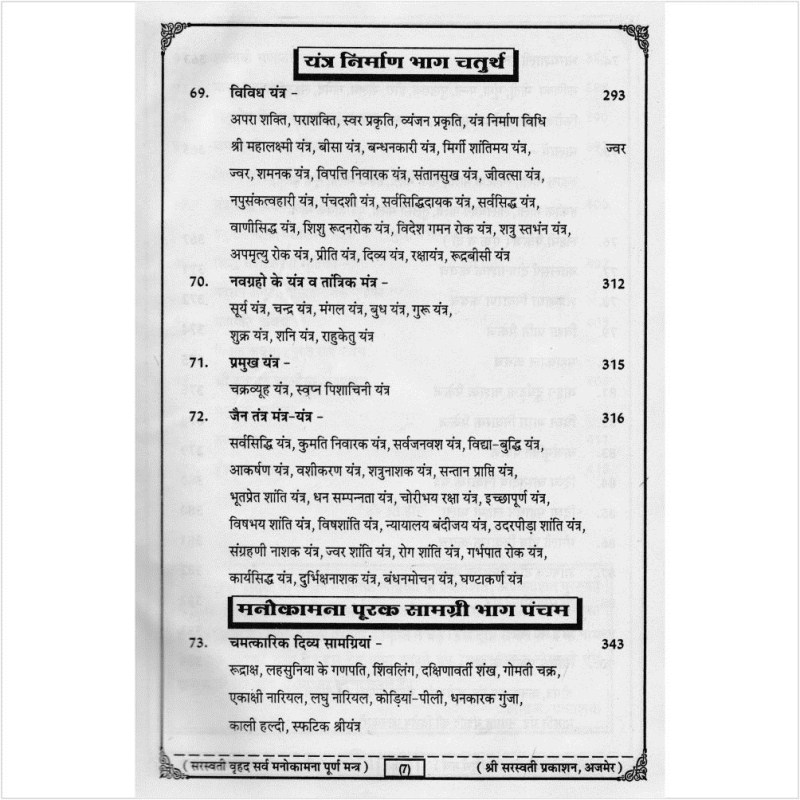 यंत्र निर्माण भाग चतुर्थ
69. विविध यंत्र – 293
अपरा शक्ति, पराशक्ति, स्वर प्रकृति, व्यंजन प्रकृति, यंत्र निर्माण विधि
श्री महालक्ष्मी यंत्र, बीसा यंत्र, बन्धनकारी यंत्र, मिर्गी शांतिमय यंत्र, ज्वर
ज्वर, शमनक यंत्र, विपत्ति निवारक यंत्र, संतानसुख यंत्र, जीवत्सा यंत्र,
नपुसंकत्वहारी यंत्र, पंचदशी यंत्र, सर्वसिद्धिदायक यंत्र, सर्वसिद्ध यंत्र,
वाणीसिद्ध यंत्र, शिशु रूदनरोक यंत्र, विदेश गमन रोक यंत्र, शत्रु स्तभंन यंत्र,
अपमृत्यु रोक यंत्र, प्रीति यंत्र, दिव्य यंत्र, रक्षायंत्र, रूद्रबीसी यंत्र
70. नवग्रहो के यंत्र व तांत्रिक मंत्र – 312
सूर्य यंत्र, चन्द्र यंत्र, मंगल यंत्र, बुध यंत्र, गुरू यंत्र,
शुक्र यंत्र, शनि यंत्र, राहुकेतु यंत्र
71. प्रमुख यंत्र – 315
चक्रव्यूह यंत्र, स्वप्न पिशाचिनी यंत्र
72. जैन तंत्र मंत्र–यंत्र – 316
सर्वसिद्धि यंत्र, कुमति निवारक यंत्र, सर्वजनवश यंत्र, विद्या–बुद्धि यंत्र,
आकर्षण यंत्र, वशीकरण यंत्र, शत्रुनाशक यंत्र, सन्तान प्राप्ति यंत्र,
भूतप्रेत शांति यंत्र, धन सम्पन्नता यंत्र, चोरीभय रक्षा यंत्र, इच्छापूर्ण यंत्र,
विषभय शांति यंत्र, विषशांति यंत्र, न्यायालय बंदीजय यंत्र, उदरपीड़ा शांति यंत्र,
संग्रहणी नाशक यंत्र, ज्वर शांति यंत्र, रोग शांति यंत्र, गर्भपात रोक यंत्र,
कार्यसिद्ध यंत्र, दुर्भिक्षनाशक यंत्र, बंधनमोचन यंत्र, घण्टाकर्ण यंत्र
मनोकामना पूरक सामग्री भाग पंचम
73. चमत्कारिक दिव्य सामग्रियां – 343
रूद्राक्ष, लहसुनिया के गणपति, शिवलिंग, दक्षिणावर्ती शंख, गोमती चक्र,
एकाक्षी नारियल, लघु नारियल, कोड़ियां–पीली, धनकारक गुंजा,
काली हल्दी, स्फटिक श्रीयंत्र
( सरस्वती वृहद सर्व मनोकामना पूर्ण मन्त्र ) (7) ( श्री सरस्वती प्रकाशन, अजमेर )